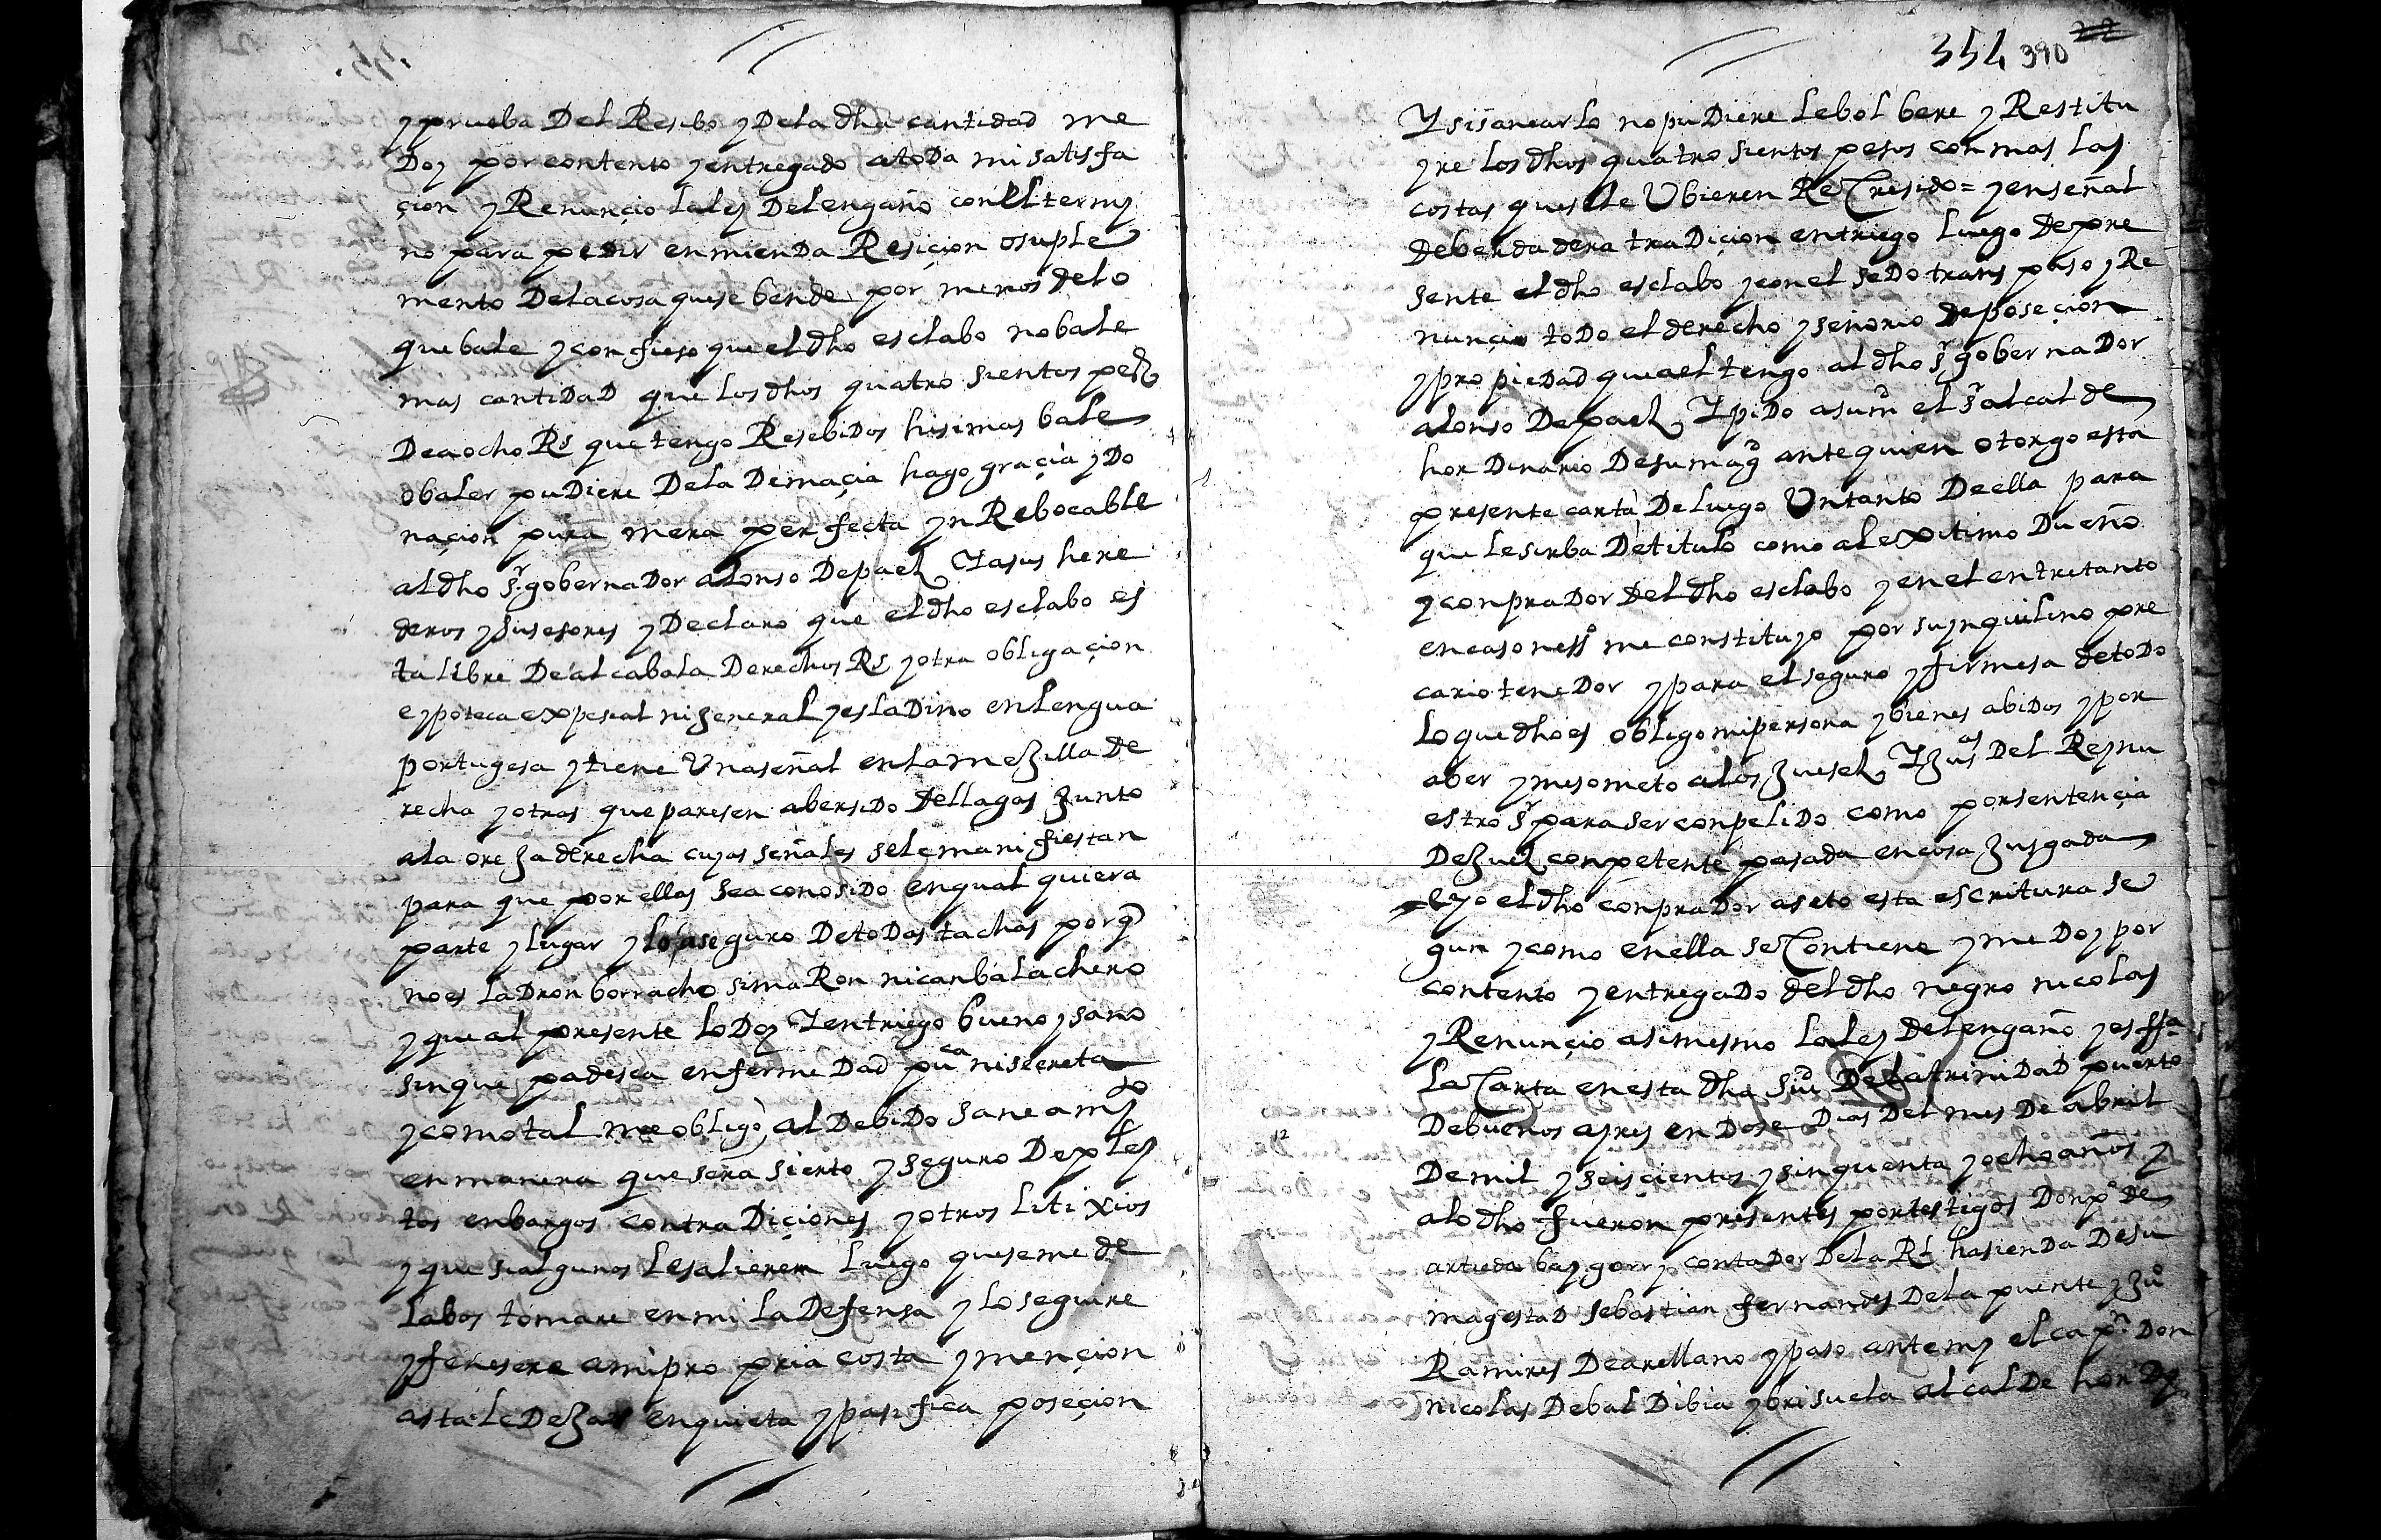 y prueba Del Resibo y Dela dha cantidad me
Doy por contento y entregado atoDa mi satisfa
çion y Renunçio la ley Del engaño con el termi
no para pedir enmienDa Resiçion o suple
mento Dela cosa que se bende por menos delo
que bale y confieso que el dho esclabo no bale
mas cantiDaD que los dhos quatro sientos pes
De a ocho Rs que tengo ResebiDos hi si mas bale
o baler puDiere Dela Demaçia hago graçia y Do
naçion pura mera perfecta yn Rebocable
al dho sr. gobernaDor alonso De paez Y a sus here
deros y susesores y Declaro que el dho esclabo es
ta libre De alcabala Derechos Rs y otra obligaçion
e ypoteca expesial ni jeneral y es laDino en lengua
portugesa y tiene Una señal en la mexilla de
recha y otras que paresen aber siDo de llagas Junto
a la oreja derecha cuyas señales se le manifiestan
para que por ellas sea conosido en qual quiera
parte y lugar y lo aseguro De toDas tachas porq
no es laDron borracho simaRon ni canbalachero
y que al presente lo Doy Y entriego bueno y sano
sin que padesca enfermeDad puca ni secreta
y como tal me obligo al DebiDo saneamto
en manera que sera sierto y seguro De pley
tos enbargos contraDiçiones y otros litixios
y que si algunos le salieren luego que se me de
labos tomare en mi la Defensa y lo seguire
y fenesere a mi propria costa y mençion
asta le Dejar en quieta y pasifica poseçion
354 390 22
Y si sanearlo no puDiere le bolbere y Restitu
yre los dhos quatro sientos pesos con mas las
costas que se le Ubieren ReCresido = y en señal
de berdadera traDiçion entriego luego De pre
sente el dho esclabo y con el sedo transpaso y Re
nunçio toDo el derecho y señorio de poseçion
y propiedad que a el tengo al dho sr gobernaDor
alonso De paez Y piDo a su md el sr alcalde
horDinario De su magd ante quien otorgo esta
presente carta De luego Un tanto De ella para
que le sirba De titulo como a lexitimo Dueño
y conpraDor Del dho esclabo y en el entretanto
en caso nesso me constituyo por su ynquilino pre
cario teneDor y para el seguro y firmesa de toDo
lo que dho es obligo mi persona y bienes abidos y por
aber y me someto a los Juesez Y Jusas Del Rey nu
estro sr para ser conpeliDo como por sentençia
De Juez conpetente pasada en cosa Jusgada
e yo el dho conpraDor aseto esta escritura se
gun y como en ella se Contiene y me Doy por
contento y entregaDo del dho negro nicolas
y Renunçio asimesmo la ley del engaño y es ffa
la Carta en esta dha siud De la triniDaD puerto
De buenos ayres en Dose Dias Del mes De abril
12
De mil y seisçientos y sinquenta y ocho años y
a lo dho fueron presentes por testigos Don po de
artieda baygorri contaDor De la Rl hasienDa De su
magestaD sebastian fernandes De la puente y Juo
Ramires De arellano y paso ante my el capn Don
nicolas De balDibia y brisuela alcalDe hor Do